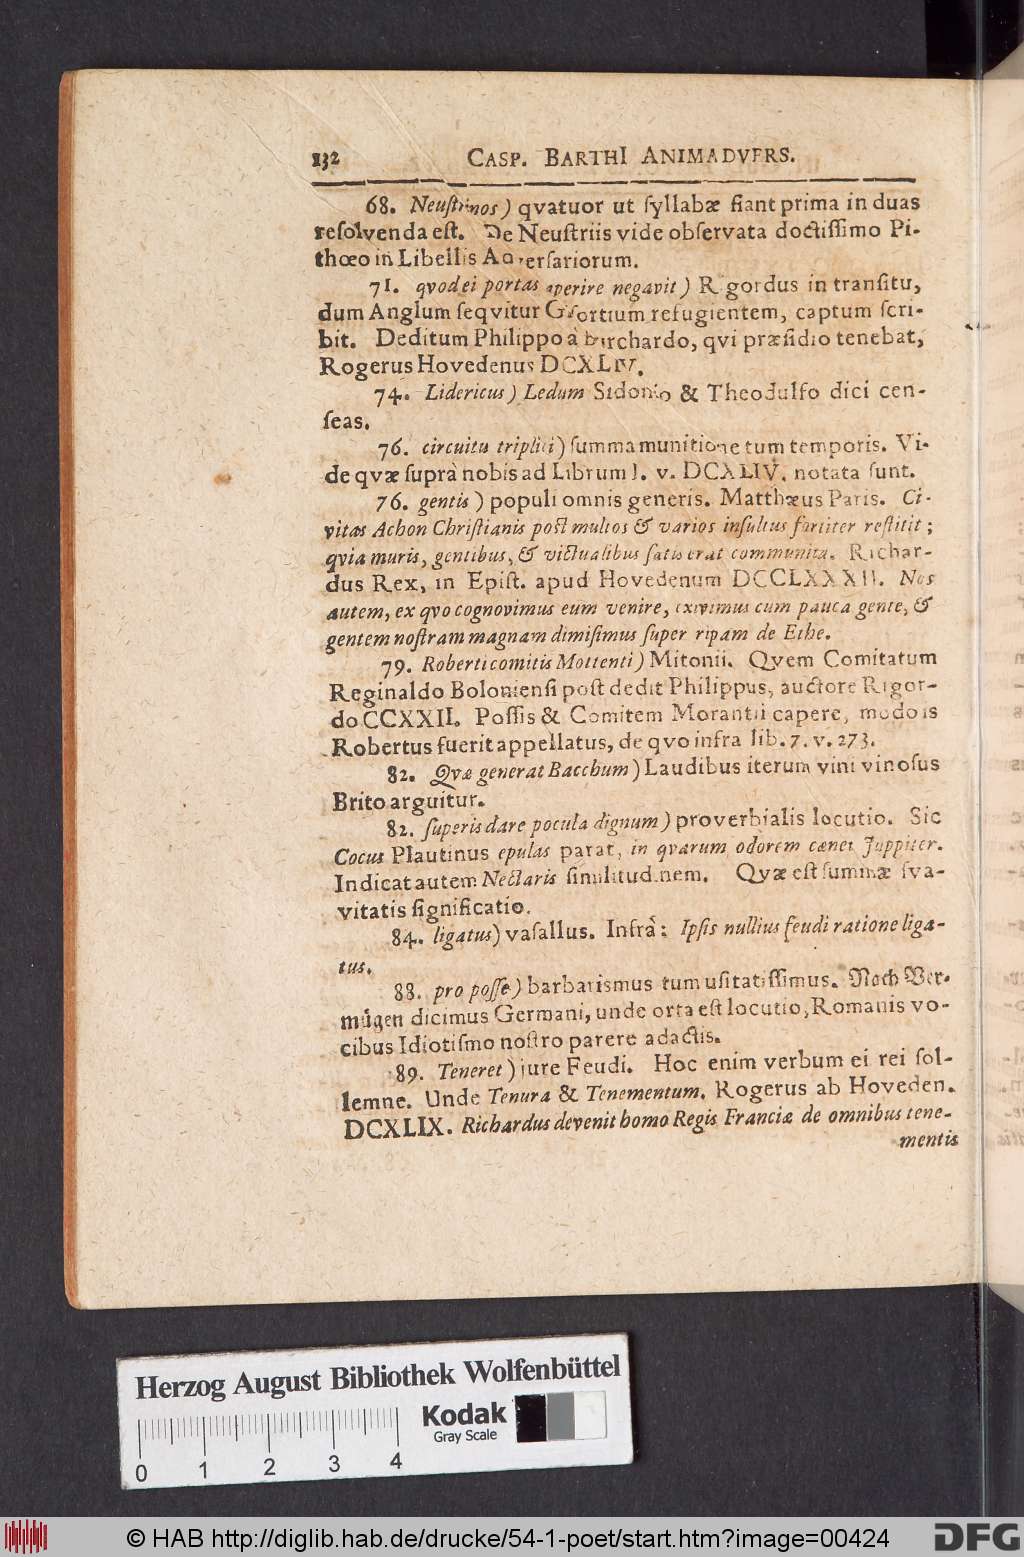 132 CASP. BARTHI ANIMADVERS.
68. Neustrinos) qvatuor ut syllabæ fiant prima in duas
resolvenda est. De Neustriis vide observata doctissimo Pi-
thœo in Libellis Adversariorum.
71. qvod ei portas aperire negavit) Rigordus in transitu,
dum Anglum seqvitur Gisortium refugientem, captum scri-
bit. Deditum Philippo à Burchardo, qvi præsidio tenebat,
Rogerus Hovedenus DCXLIV.
74. Lidericus) Ledum Sidonio & Theodulfo dici cen-
seas.
76. circuitu triplici) summa munitione tum temporis. Vi-
de qvæ suprà nobis ad Librum I. v. DCXLIV. notata sunt.
76. gentis) populi omnis generis. Matthæus Paris. Ci-
vitas Achon Christianis post multos & varios insultus fortiter restitit;
qvia muris, gentibus, & victualibus satis erat communita. Richar-
dus Rex, in Epist. apud Hovedenum DCCLXXXII. Nos
autem, ex qvo cognovimus eum venire, exivimus cum pauca gente, &
gentem nostram magnam dimisimus super ripam de Ethe.
79. Roberti comitis Mottenti) Mitonii. Qvem Comitatum
Reginaldo Boloniensi post dedit Philippus, auctore Rigor-
do CCXXII. Possis & Comitem Morantii capere, modo is
Robertus fuerit appellatus, de qvo infra lib. 7. v. 273.
82. Qvæ generat Bacchum) Laudibus iterum vini vinosus
Brito arguitur.
82. superis dare pocula dignum) proverbialis locutio. Sic
Cocus Plautinus epulas parat, in qvarum odorem cœnet Juppiter.
Indicat autem Nectaris similitudinem. Qvæ est summæ sva-
vitatis significatio.
84. ligatus) vasallus. Infrà: Ipsis nullius feudi ratione liga-
tus.
88. pro posse) barbarismus tum usitatissimus. Nach Ver-
mügen dicimus Germani, unde orta est locutio, Romanis vo-
cibus Idiotismo nostro parere adactis.
89. Teneret) jure Feudi. Hoc enim verbum ei rei sol-
lemne. Unde Tenura & Tenementum. Rogerus ab Hoveden.
DCXLIX. Richardus devenit homo Regis Franciæ de omnibus tene-
mentis
Herzog August Bibliothek Wolfenbüttel
Kodak
Gray Scale
0 1 2 3 4
© HAB http://diglib.hab.de/drucke/54-1-poet/start.htm?image=00424
DFG